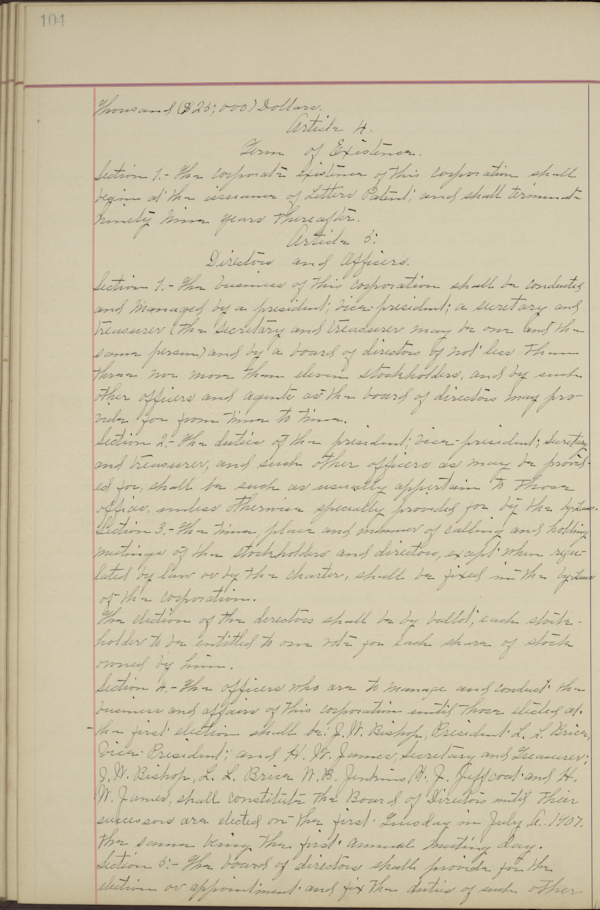 104
Thousand ($25,000) Dollars.
Article 4.
Term of Existence.
Section 1.- The corporate existence of this corporation shall
begin at the issuance of Letters Patent, and shall terminate
ninety nine years thereafter.
Article 5.
Directors and Officers.
Section 1.- The business of this corporation shall be conducted
and managed by a president, vice-president, a secretary and
treasurer (the secretary and treasurer may be one and the
same person) and by a board of directors by not less than
three nor more than eleven stockholders, and by such
other officers and agents as the board of directors may pro-
vide for from time to time.
Section 2.- The duties of the president, vice-president, secretary
and treasurer, and such other officers as may be provid-
ed for, shall be such as usually appertain to those
offices, unless otherwise specially provided for by the by-laws.
Section 3.- The time, place and manner of calling and holding
meetings of the stockholders and directors, except when regu-
lated by law or by the charter, shall be fixed in the by-laws
of the corporation.
The election of the directors shall be by ballot, each stock-
holder to be entitled to one vote for each share of stock
owned by him.
Section 4.- The officers who are to manage and conduct the
business and affairs of this corporation until those elected at
the first election shall be: J. W. Bishop, President L. L. Brice,
Vice-President, and H. W. James, Secretary and Treasurer;
J. W. Bishop, L. L. Brice W. B. Jenkins, H. J. Jeffcoat and H.
W. James, shall constitute the Board of Directors until their
successors are elected on the first Tuesday in July A. 1907.
the same being the first annual meeting day.
Section 5.- The board of directors shall provide for the
election or appointment and fix the duties of such other